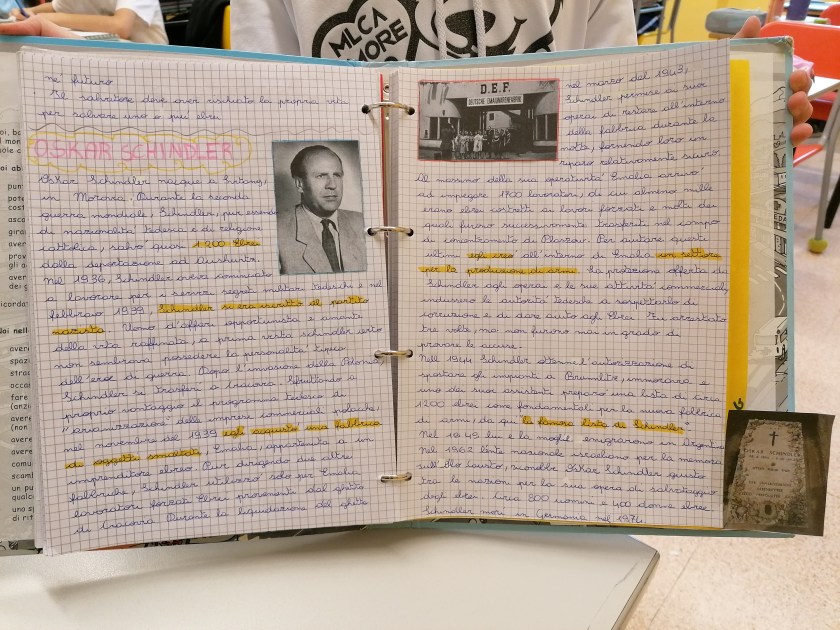 MLCA
MORE
ne futuro
Il salvatore deve aver rischiato la propria vita
per salvare uno o più ebrei
OSKAR SCHINDLER
Oskar Schindler nacque a
in Moravia. Durante la seconda
guerra mondiale, Schindler, pur essendo
di nazionalità tedesca e di religione
cattolica, salvò quasi 1200 Ebrei
dalla deportazione ad
Nel 1936, Schindler aveva cominciato
a lavorare per i servizi segreti militari tedeschi e nel
febbraio 1939, Schindler si era iscritto al partito
nazista. Uomo d'affari opportunista e amante
della vita raffinata, a prima vista schindler certo
non sembrava possedere la personalità tipica
dell'eroe di guerra. Dopo l'invasione della Polonia,
Schindler si trasferì a Cracovia. Sfruttando a
proprio vantaggio il programma tedesco di
"arianizzazione" delle imprese commerciali polacche,
nel novembre del 1939 egli acquistò una fabbrica
di oggetti smaltati, Emalia, appartenuta a un
imprenditore ebreo. Pur dirigendo due altre
fabbriche, Schindler utilizzò solo per Emalia
lavoratori forzati Ebrei provenienti dal ghetto
di Cracovia. Durante la liquidazione del ghetto
D.E.F.
DEUTSCHE EMAILWARENFABRIK
nel marzo del 1943,
Schindler permise a suoi
operai di restare all'interno
della fabbrica durante la
notte, fornendo loro un
riparo relativamente sicuro
Al massimo della sua operatività Emalia arrivò
ad impiegare 1700 lavoratori, di cui almeno mille
erano ebrei costretti ai lavori forzati e molti dei
quali furono successivamente trasferiti nel campo
di concentramento di Plaszow. Per aiutare questi
ultimi egli creò all'interno di Emalia un settore
per la produzione di armi. La protezione offerta da
Schindler agli operai e le sue attività commerciali,
indussero le autorità tedesche a sospettarlo di
corruzione e di dare aiuto agli Ebrei. Fu arrestato
tre volte, ma non furono mai in grado di
provare le accuse.
Nell 1944 Schindler ottenne l'autorizzazione di
spostare gli impianti a Brunnlitz, in moravia e
uno dei suoi assistenti preparò una lista di circa
1200 ebrei come fondamentali per la nuova fabbrica
di armi, da qui "la famosa lista di Schindler".
Nel 1949 lui e la moglie emigrarono in Argentina
Nel 1962 l'ente nazionale israeliano per la memoria
sull'Olocausto, riconobbe Oskar Schindler giusto
tra le nazioni per la sua opera di salvataggio
degli ebrei. Circa 800 uomini e 400 donne ebree
Schindler morì in Germania nel 1974.
OSKAR SCHINDLER